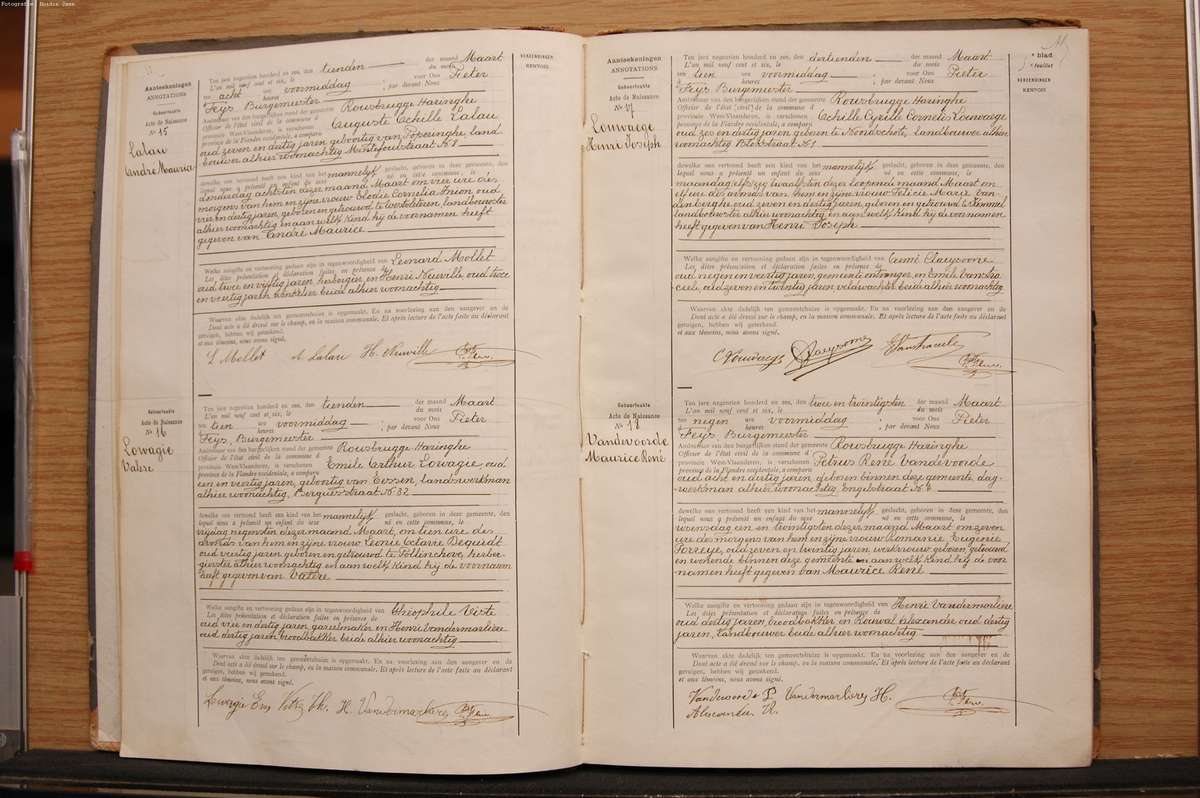 Fotografie: Houdin Jean
Aanteekeningen
ANNOTATIONS
Geboorteakte
Acte de Naissance
No 15
Lalau
André Maurice
Ten jare negentien honderd en zes, den tienden der maand Maart
L'an mil neuf cent et six, le du mois
ten acht ure voormiddag voor Ons Pieter
à heures ; par devant Nous
Feys Burgemeester
Ambtenaar van den burgerlijken stand der gemeente Rousbrugge Haringhe
Officier de l'état civil de la commune d
provincie West-Vlaanderen, is verschenen Auguste Achille Lalau
province de la Flandre occidentale, a comparu
oud zes en dertig jaren, geboortig van Poperinghe, land
bouwer alhier woonachtig Montefoulstraat No 1
dewelke ons vertoond heeft een kind van het mannelijk geslacht, geboren in deze gemeente, den
lequel nous a présenté un enfant du sexe né en cette commune, le
donderdag achtsten dezer maand Maart om vier ure des
morgens van hem en zijne vrouw Elodie Cornelia Inion oud
vier en dertig jaren, geboren en getrouwd te Westvleteren, landbouwster
alhier woonachtig en aan welk kind hij de voornamen heeft
gegeven van André Maurice
Welke aangifte en vertooning gedaan zijn in tegenwoordigheid van Leonard Mollet
Les dites présentation et déclaration faites en présence de
oud twee en vijftig jaren, herbergier, en Henri Neuville oud twee
en veertig jaren, winkelier beide alhier woonachtig
Waarvan akte dadelijk ten gemeentehuize is opgemaakt. En na voorlezing aan den aangever en de
Dont acte a été dressé sur le champ, en la maison communale. Et après lecture de l'acte faite au déclarant
getuigen, hebben wij geteekend.
et aux témoins, nous avons signé.
L Mollet A Lalau H. Neuville Pr Feys
Geboorteakte
Acte de Naissance
No 16
Lowagie
Valere
Ten jare negentien honderd en zes, den tienden der maand Maart
L'an mil neuf cent et six, le du mois
ten tien ure voormiddag voor Ons Pieter
à heures ; par devant Nous
Feys, Burgemeester
Ambtenaar van den burgerlijken stand der gemeente Rousbrugge Haringhe
Officier de l'état civil de la commune d
provincie West-Vlaanderen, is verschenen Emile Arthur Lowagie, oud
province de la Flandre occidentale, a comparu
een en veertig jaren, geboortig van Eessen, landswerkman
alhier woonachtig, Berguesstraat No 32
dewelke ons vertoond heeft een kind van het mannelijk geslacht, geboren in deze gemeente, den
lequel nous a présenté un enfant du sexe né en cette commune, le
vrijdag negensten dezer maand Maart, om tien ure des
avonds van hem en zijne vrouw Leonie Octavie Deguidt
oud veertig jaren geboren en getrouwd te Pollinchove, herber-
gierster alhier woonachtig en aan welk kind hij de voornaam
heeft gegeven van Valere
Welke aangifte en vertooning gedaan zijn in tegenwoordigheid van Theophile
Les dites présentation et déclaration faites en présence de
oud vier en dertig jaren gareelmaker en Henri Vandermarliere
oud dertig jaren broodbakker beide alhier woonachtig
Waarvan akte dadelijk ten gemeentehuize is opgemaakt. En na voorlezing aan den aangever en de
Dont acte a été dressé sur le champ, en la maison communale. Et après lecture de l'acte faite au déclarant
getuigen, hebben wij geteekend.
et aux témoins, nous avons signé.
Lowagie Em Th. H. Vandermarliere Pr Feys
BEREKENINGEN
RENVOIS
Aanteekeningen
ANNOTATIONS
Geboorteakte
Acte de Naissance
No 17
Louwaege
Henri Joseph
Ten jare negentien honderd en zes, den dertienden der maand Maart
L'an mil neuf cent et six, le du mois
ten tien ure voormiddag voor Ons Pieter
à heures ; par devant Nous
Feys Burgemeester
Ambtenaar van den burgerlijken stand der gemeente Rousbrugge Haringhe
Officier de l'état civil de la commune d
provincie West-Vlaanderen, is verschenen Achille Cyrille Cornelis Louwaege
province de la Flandre occidentale, a comparu
oud zes en dertig jaren, geboren te Hondschote, landbouwer alhier
woonachtig Blokstraat No 1
dewelke ons vertoond heeft een kind van het mannelijk geslacht, geboren in deze gemeente, den
lequel nous a présenté un enfant du sexe né en cette commune, le
maandag twaalfsten dezer loopende maand Maart om
ure des avonds van hem en zijne vrouw Felicie Marie Van-
denberghe oud zeven en dertig jaren, geboren en getrouwd te Kemmel
landbouwster alhier woonachtig en aan welk kind hij de voornamen
heeft gegeven van Henri Joseph
Welke aangifte en vertooning gedaan zijn in tegenwoordigheid van Remi Claeysoone
Les dites présentation et déclaration faites en présence de
oud negen en veertig jaren, gemeente ontvanger, en Emile Vanstra-
ceele oud zeven en twintig jaren, veldwachter, beide alhier woonachtig
Waarvan akte dadelijk ten gemeentehuize is opgemaakt. En na voorlezing aan den aangever en de
Dont acte a été dressé sur le champ, en la maison communale. Et après lecture de l'acte faite au déclarant
getuigen, hebben wij geteekend.
et aux témoins, nous avons signé.
C Louwaege R Claeysoone E Vanstraceele Pr Feys
Geboorteakte
Acte de Naissance
No 18
Vandevoorde
Maurice René
Ten jare negentien honderd en zes, den twee en twintigsten der maand Maart
L'an mil neuf cent et six, le du mois
ten negen ure voormiddag voor Ons Pieter
à heures ; par devant Nous
Feys, Burgemeester
Ambtenaar van den burgerlijken stand der gemeente Rousbrugge Haringhe
Officier de l'état civil de la commune d
provincie West-Vlaanderen, is verschenen Petrus René Vandevoorde
province de la Flandre occidentale, a comparu
oud acht en dertig jaren, geboren binnen deze gemeente, dag-
werkman alhier woonachtig Engelstraat No 6
dewelke ons vertoond heeft een kind van het mannelijk geslacht, geboren in deze gemeente, den
lequel nous a présenté un enfant du sexe né en cette commune, le
woensdag een en twintigsten dezer maand Maart om zeven
ure des morgens van hem en zijne vrouw Romanie Eugenie
Torreye, oud zeven en twintig jaren, werkvrouw, geboren, getrouwd
en wonende binnen deze gemeente en aan welk kind hij de voor
namen heeft gegeven van Maurice René
Welke aangifte en vertooning gedaan zijn in tegenwoordigheid van Henri Vandermarliere
Les dites présentation et déclaration faites en présence de
oud dertig jaren, broodbakker en Rouwal Alexander oud dertig
jaren, landbouwer beide alhier woonachtig
Waarvan akte dadelijk ten gemeentehuize is opgemaakt. En na voorlezing aan den aangever en de
Dont acte a été dressé sur le champ, en la maison communale. Et après lecture de l'acte faite au déclarant
getuigen, hebben wij geteekend.
et aux témoins, nous avons signé.
Vandevoorde P Vandermarliere H. Pr Feys
Alexander R.
blad
feuillet
BEREKENINGEN
RENVOIS